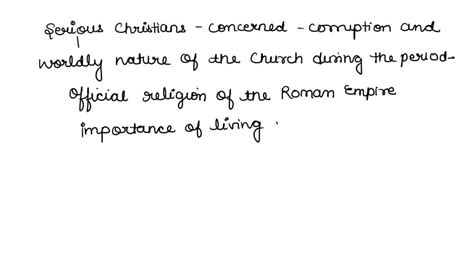 Serious Christians - concerned - corruption and
worldly nature of the Church during the period-
official religion of the Roman Empire
importance of living